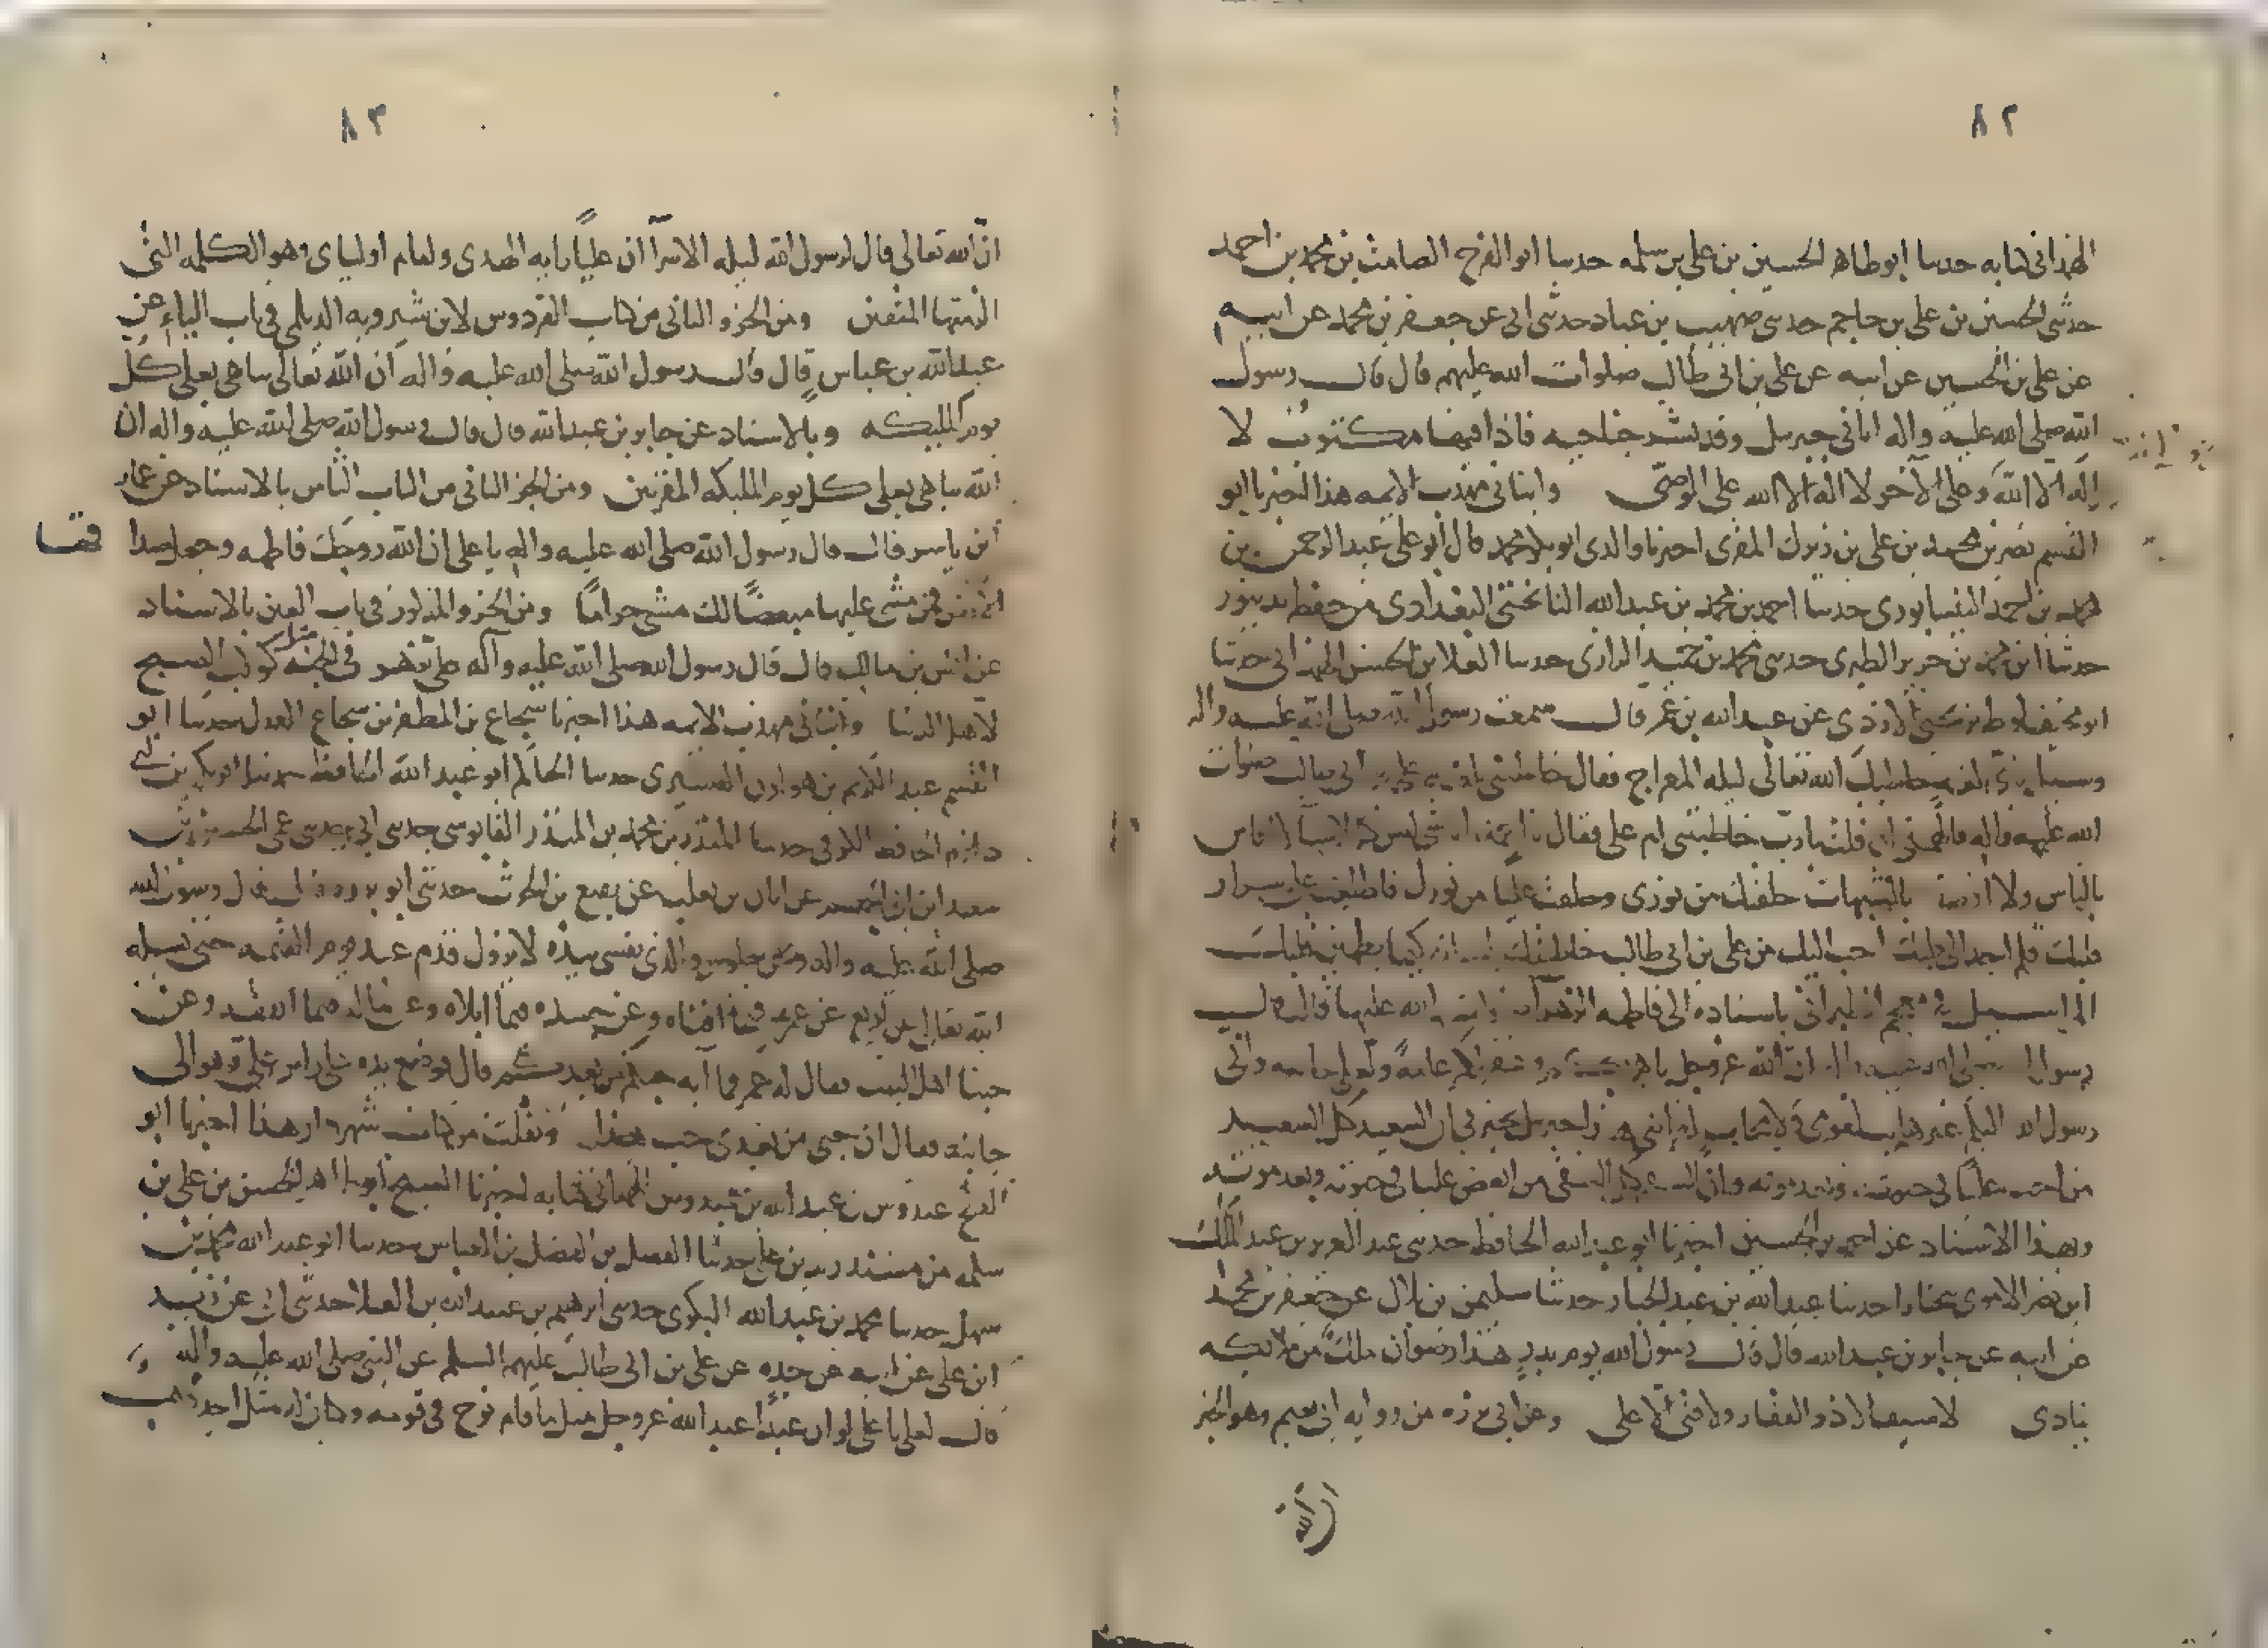 ٨٢
الهمداني كتابه حدثنا ابو طاهر الحسين بن علي بن سلمه حدثنا ابو الفرج الصامت بن محمد بن احمد
حدثني الحسين بن علي بن حاجم حدثني صهيب بن عباد حدثني ابي عن جعفر بن محمد عن ابيه
عن علي بن الحسين عن ابيه عن علي بن ابي طالب صلوات الله عليهم قال قال رسول
الله صلى الله عليه واله اتاني جبرئيل وقد نشر جناحيه فاذا فيهما مكتوب لا
اله الا الله وعلى الآخر لا اله الا الله علي الوصي وانبأني مهذب الايمه هذا انا ابو
القسم نصر بن محمد بن علي بن زيرك المقرى اخبرنا والدي ابو بكر محمد قال ابو علي عبد الرحمن بن
محمد بن احمد النيسابوري حدثنا احمد بن محمد بن عبد الله النانجني البغدادي من حفظه بدينور
حدثنا ابن محمد بن جرير الطبري حدثني محمد بن حميد الرازي حدثنا العلا بن الحسين الهمداني حدثنا
ابو مخنف لوط بن يحيى الازدي عن عبد الله بن عمر قال سمعت رسول الله صلى الله عليه واله
وسئل باي لغه خاطبك الله تعالى ليله المعراج فقال خاطبني بلغه علي بن ابي طالب صلوات
الله عليه واله فالهمني ان قلت يا رب خاطبتني ام علي فقال يا احمد انا شي ليس كالاشيا لا اقاس
بالناس ولا اوصف بالشبهات خلقتك من نوري وخلقت عليا من نورك فاطلعت على سراير
قلبك فلم اجد الى قلبك احب اليك من علي بن ابي طالب خاطبتك بلسانه كيما يطمئن قلبك
في معجم الطبراني باسناده الى فاطمه الزهرا الله عليها قالت قال
رسول الله ان الله عز وجل باهى بكم وغفر لكم عامة ولعلي خاصه واني
رسول الله اليكم غير هايب لقومي ولا محاب لقرابتي هذا جبرئيل يخبرني ان السعيد كل السعيد
من احب عليا في حيوته وبعد موته وان الشقي كل الشقي من ابغض عليا في حيوته وبعد موته
وبهذا الاسناد عن احمد بن الحسين اخبرنا ابو عبد الله الحافظ حدثني عبد العزيز بن عبد الملك
ابن نصر الاموي حدثنا عبد الله بن عبد الجبار حدثنا سليمن بن بلال عن جعفر بن محمد
عن ابيه عن جابر بن عبد الله قال قال رسول الله يوم بدر هذا رضوان ملك من ملائكه
ينادى لا سيف الا ذو الفقار ولا فتى الا علي وعن ابي برزه من روايه ابي نعيم وهو الخبر
٨٣
ان الله تعالى قال لرسول الله ليله الاسرا ان عليا رايه الهدى وامام اوليائي وهو الكلمه التي
الزمتها المتقين ومن الجزو الثاني من كتاب الفردوس لابن شيرويه الديلمي في باب الياء عن
عبد الله بن عباس قال قال رسول الله صلى الله عليه واله ان الله تعالى يباهي بعلي كل
يوم الملئكه وبالاسناد عن جابر بن عبد الله قال قال رسول الله صلى الله عليه واله ان
الله يباهي بعلي كل يوم الملئكه المقربين ومن الجز الثاني من الباب الثامن بالاسناد عن عمار
ابن ياسر قال قال رسول الله صلى الله عليه واله يا علي ان الله زوجك فاطمه وجعل صداقها
الارض فمن مشى عليها مبغضا لك مشى حراما ومن الجزو المذكور في باب العين بالاسناد
عن انس بن مالك قال قال رسول الله صلى الله عليه وآله علي يزهر في الجنه مثل كوكب الصبح
لاهل الدنيا وانبأني مهذب الايمه هذا اخبرنا شجاع بن المظفر بن شجاع العدل حدثنا ابو
القسم عبد الكريم بن هوازن القشيري حدثنا الحاكم ابو عبد الله الحافظ حدثنا ابو بكر بن ابي
دارم الحافظ الكوفي حدثنا المنذر بن محمد بن المنذر القابوسي حدثني ابي حدثني عمي الحسين بن
سعيد ابن ابي الجهم عن ابان بن تغلب عن نفيع بن الحرث حدثني ابو برده قال قال رسول الله
صلى الله عليه واله ونحن جلوس والذي نفسي بيده لا يزول قدم عبد يوم القيمه حتى يسئله
الله تعالى عن اربع عن عمره فيما افناه وعن جسده فيما ابلاه وعن ماله مما اكتسبه وعن
حبنا اهل البيت فقال له عمر فما آيه حبكم من بعدكم قال فوضع يده على راس علي وهو الى
جانبه فقال ان حبي من بعدي حب هذا ونقلت من كتاب شهردار هذا اخبرنا ابو
الفتح عبدوس بن عبد الله بن عبدوس الهمداني كتابه اخبرنا الشيخ ابو طاهر الحسين بن علي بن
سلمه من مسند زيد بن علي حدثنا الفضل بن الفضل بن العباس حدثنا ابو عبد الله محمد بن
سهل حدثنا محمد بن عبد الله البلوى حدثني ابرهيم بن عبيد الله بن العلا حدثني ابي عن زيد
ابن علي عن ابيه عن جده عن علي بن ابي طالب عليهم السلم عن النبي صلى الله عليه واله
قال لعلي يا علي لو ان عبدا عبد الله عز وجل مثل ما قام نوح في قومه وكان له مثل احد ذهب